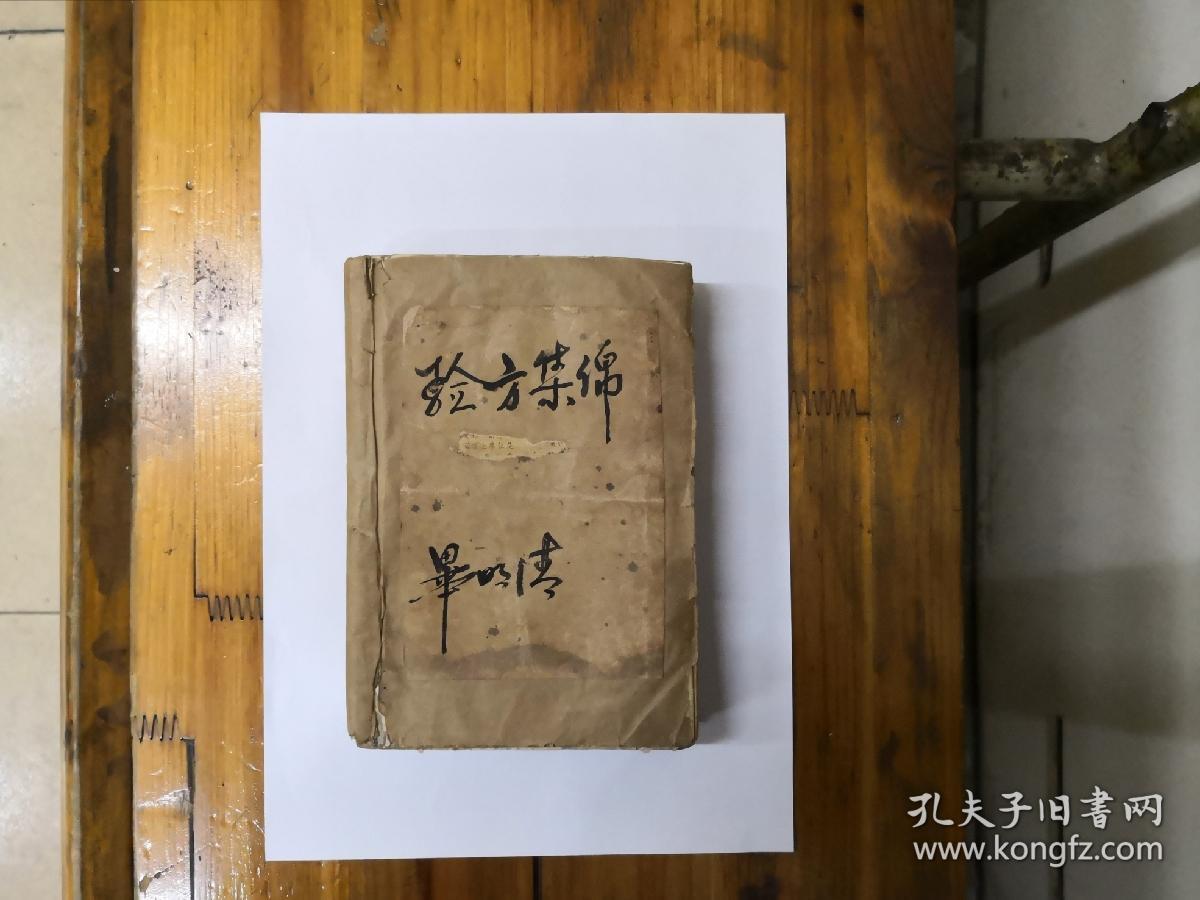 验方集锦
畢明清
孔夫子旧書网
www.kongfz.com